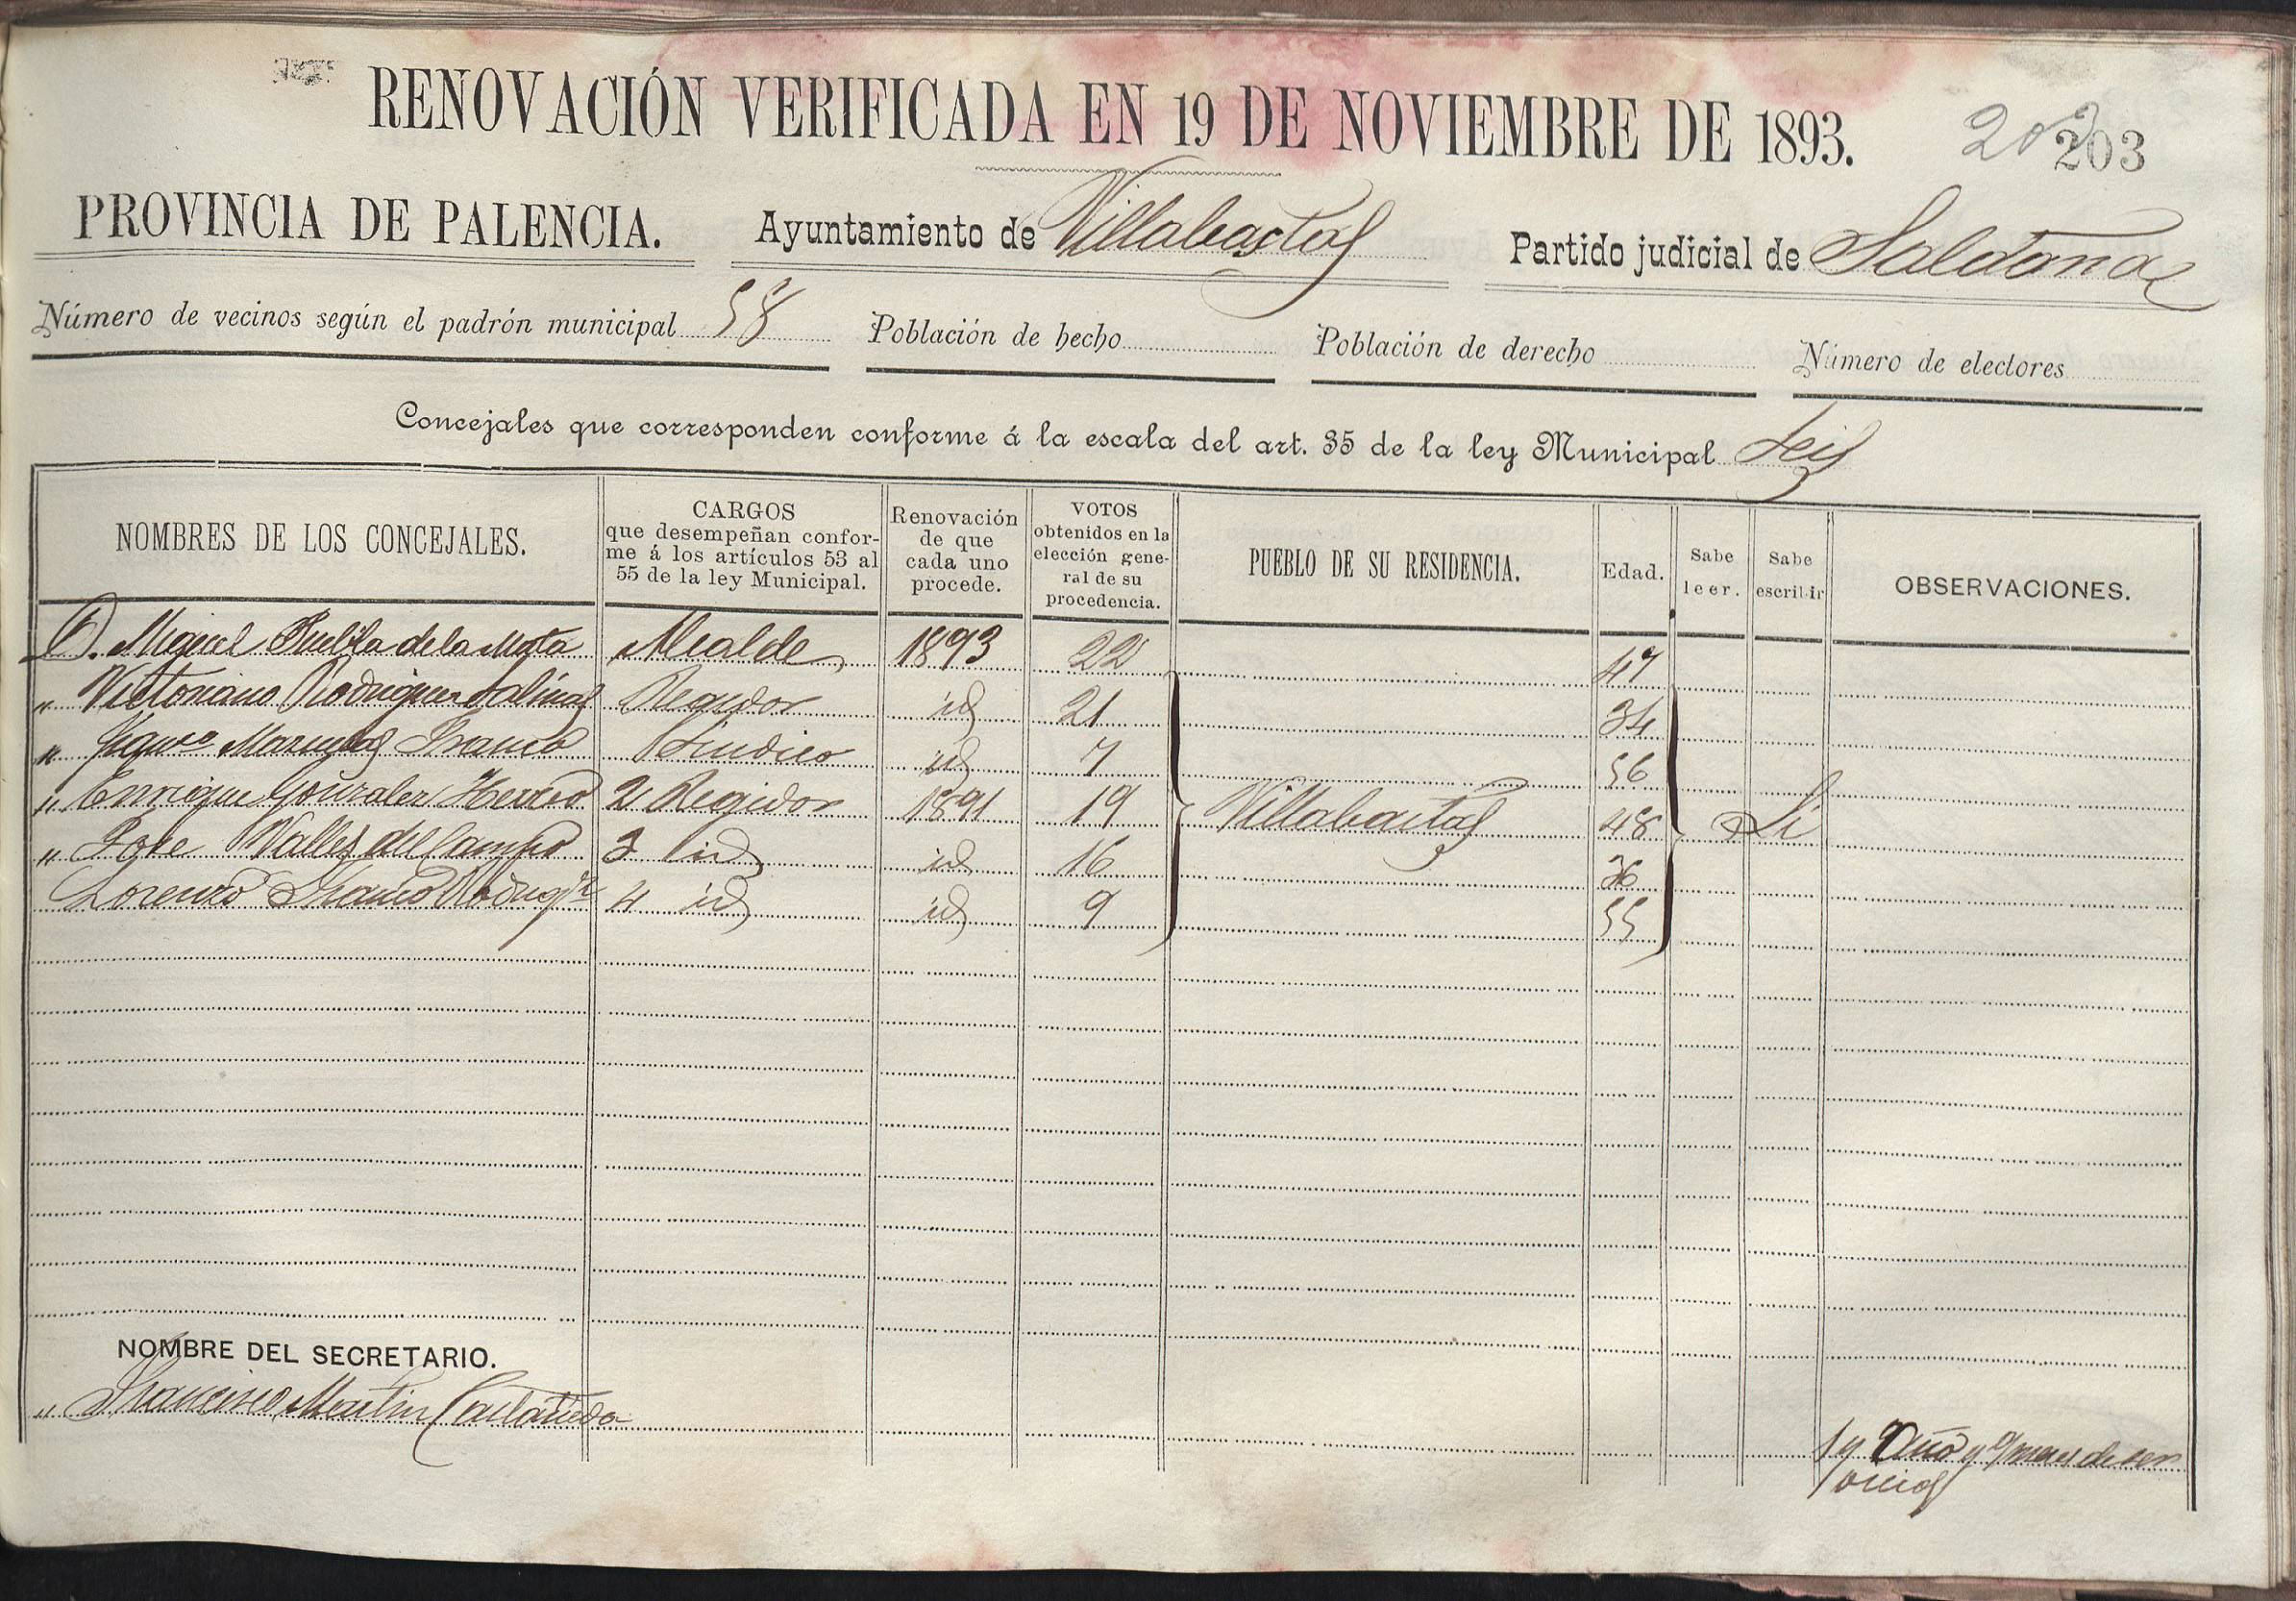 RENOVACIÓN VERIFICADA EN 19 DE NOVIEMBRE DE 1893.
203 203
PROVINCIA DE PALENCIA. Ayuntamiento de Villabastas Partido judicial de Saldaña
Número de vecinos según el padrón municipal 58 Población de hecho Población de derecho Número de electores
Concejales que corresponden conforme á la escala del art. 35 de la ley Municipal Seis
NOMBRES DE LOS CONCEJALES. CARGOS que desempeñan conforme á los artículos 53 al 55 de la ley Municipal. Renovación de que cada uno procede. VOTOS obtenidos en la elección general de su procedencia. PUEBLO DE SU RESIDENCIA. Edad. Sabe leer. Sabe escribir OBSERVACIONES.
D. Miguel Puebla de la Mota Alcalde 1893 22 47
" Victoriano Rodriguez Salinas Regidor id 21 34
" Franco Sindico id 7 56
" Enrique Gonzalez Herrero 2 Regidor 1891 19 Villabastas 48 Si
" Jose Valles del Campo 3 id id 16 36
Lorenzo Franco Rodrigz 4 id id 9 55
NOMBRE DEL SECRETARIO.
" Francisco Martin Castañeda
14 Año y 9 meses de ser
vicios